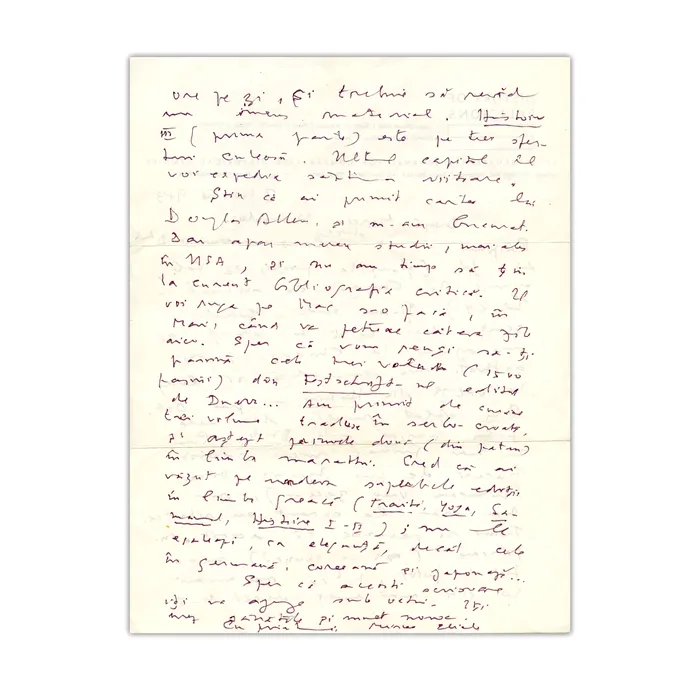 ore pe zi, și trebuie să revăd
un imens material. Histoire
III (prima parte) este pe trei sfer-
turi culeasă. Ultimul capitol îl
voi expedia săptămîna viitoare.
Știu că ai primit cartea lui
Douglas Allen, și m-am bucurat.
Dar apar mereu studii, mai ales
în USA, și nu am timp să țin
la curent bibliografia critică. Îl
voi ruga pe Mac s-o facă, în
Mai, când va petrece câteva zile
aici. Sper că vom reuși să-ți
parvină cele trei volume (1500
pagini) din Festschrift-ul editat
de Duerr... Am primit de curînd
trei volume traduse în serbo-croată,
și aștept primele două (din patru)
în limba marathi. Cred că ai
văzut pe undeva superbele ediții
în limba greacă (Traité, Yoga, Ša-
manul, Histoire I-II); nu le
egalează, ca eleganță, decât cele
în germană, coreeană și japoneză...
Sper că această scrisoare
îți va ajunge sub ochi. Îți
urez sănătate și mult noroc.
Cu prietenie, Mircea Eliade